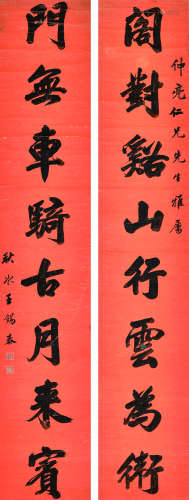 仲亮仁兄先生雅屬
閣對谿山行雲為衛
門無車騎古月來賓
秋水王錫泰